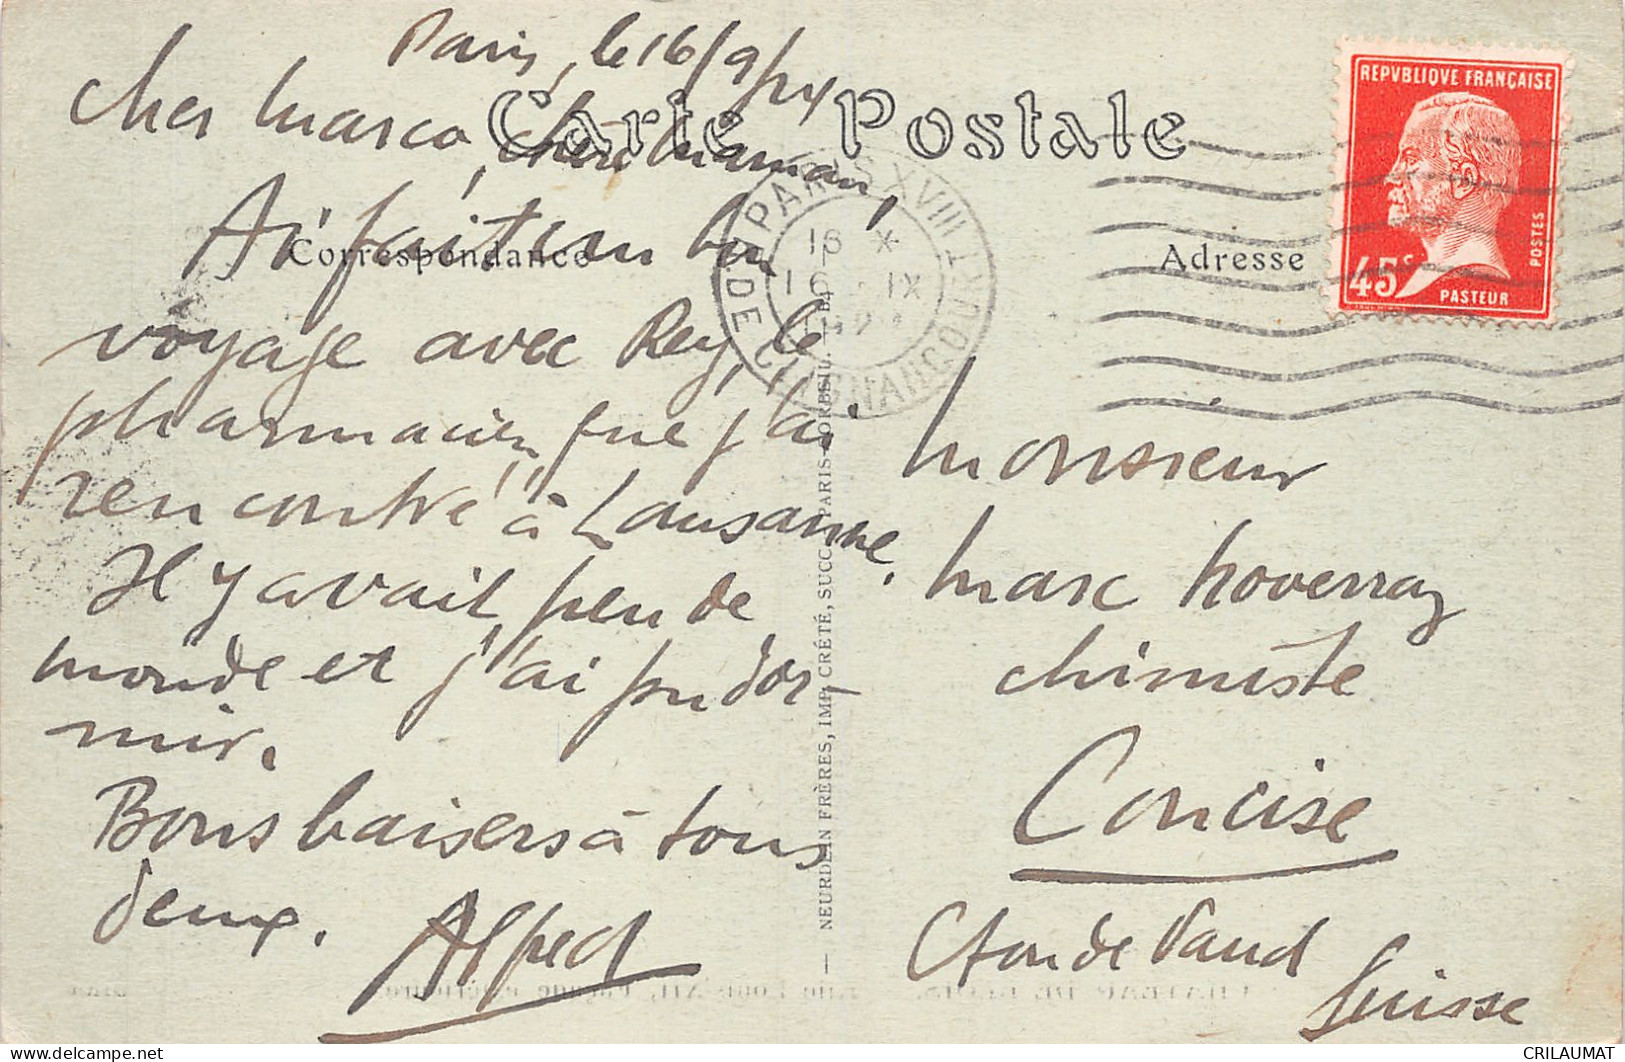 Paris, le 16/9/24
Cher Marco, chère Maman,
Carte Postale
Correspondance
Adresse
Ai fait un bon
voyage avec Rey, le
pharmacien, que j'ai
rencontré à Lausanne.
Il y avait peu de
monde et j'ai pu dor-
mir.
Bons baisers à tous
deux.
Alfred
REPVBLIQVE FRANÇAISE
POSTES
45c
PASTEUR
PARIS XVIII
16
IX
Monsieur
Marc Hoverray
chimiste
Concise
Cton de Vaud
Suisse
— NEURDEIN FRÈRES, IMP. CRÉTÉ, SUCC., PARIS-CORBEIL.
CRILAUMAT